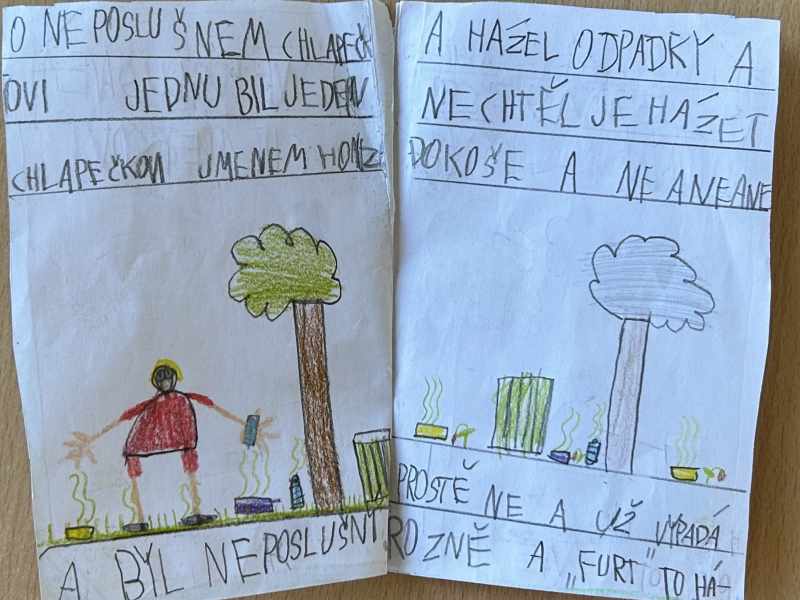 O NEPOSLUŠNEM CHLAPEČK
OVI JEDNU BIL JEDEN
CHLAPEČKOVI JMENEM HONZ
A BYL NEPOSLUŠNÝ
A HÁZEL ODPADKY A
NECHTĚL JE HÁZET
DOKOŠE A NEANEANE
PROSTĚ NE A UŽ VYPADÁ
ROZNĚ A „FURT" TO HÁ-